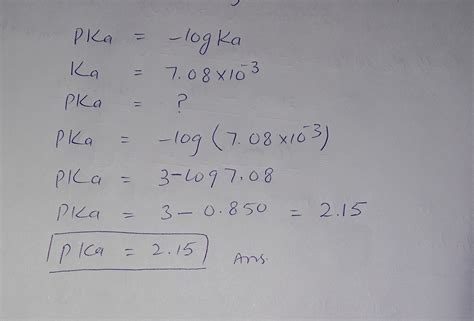 PKa = -log Ka
Ka = 7.08×10⁻³
PKa = ?
PKa = -log (7.08×10⁻³)
PKa = 3-log 7.08
PKa = 3-0.850 = 2.15
PKa = 2.15 Ans.